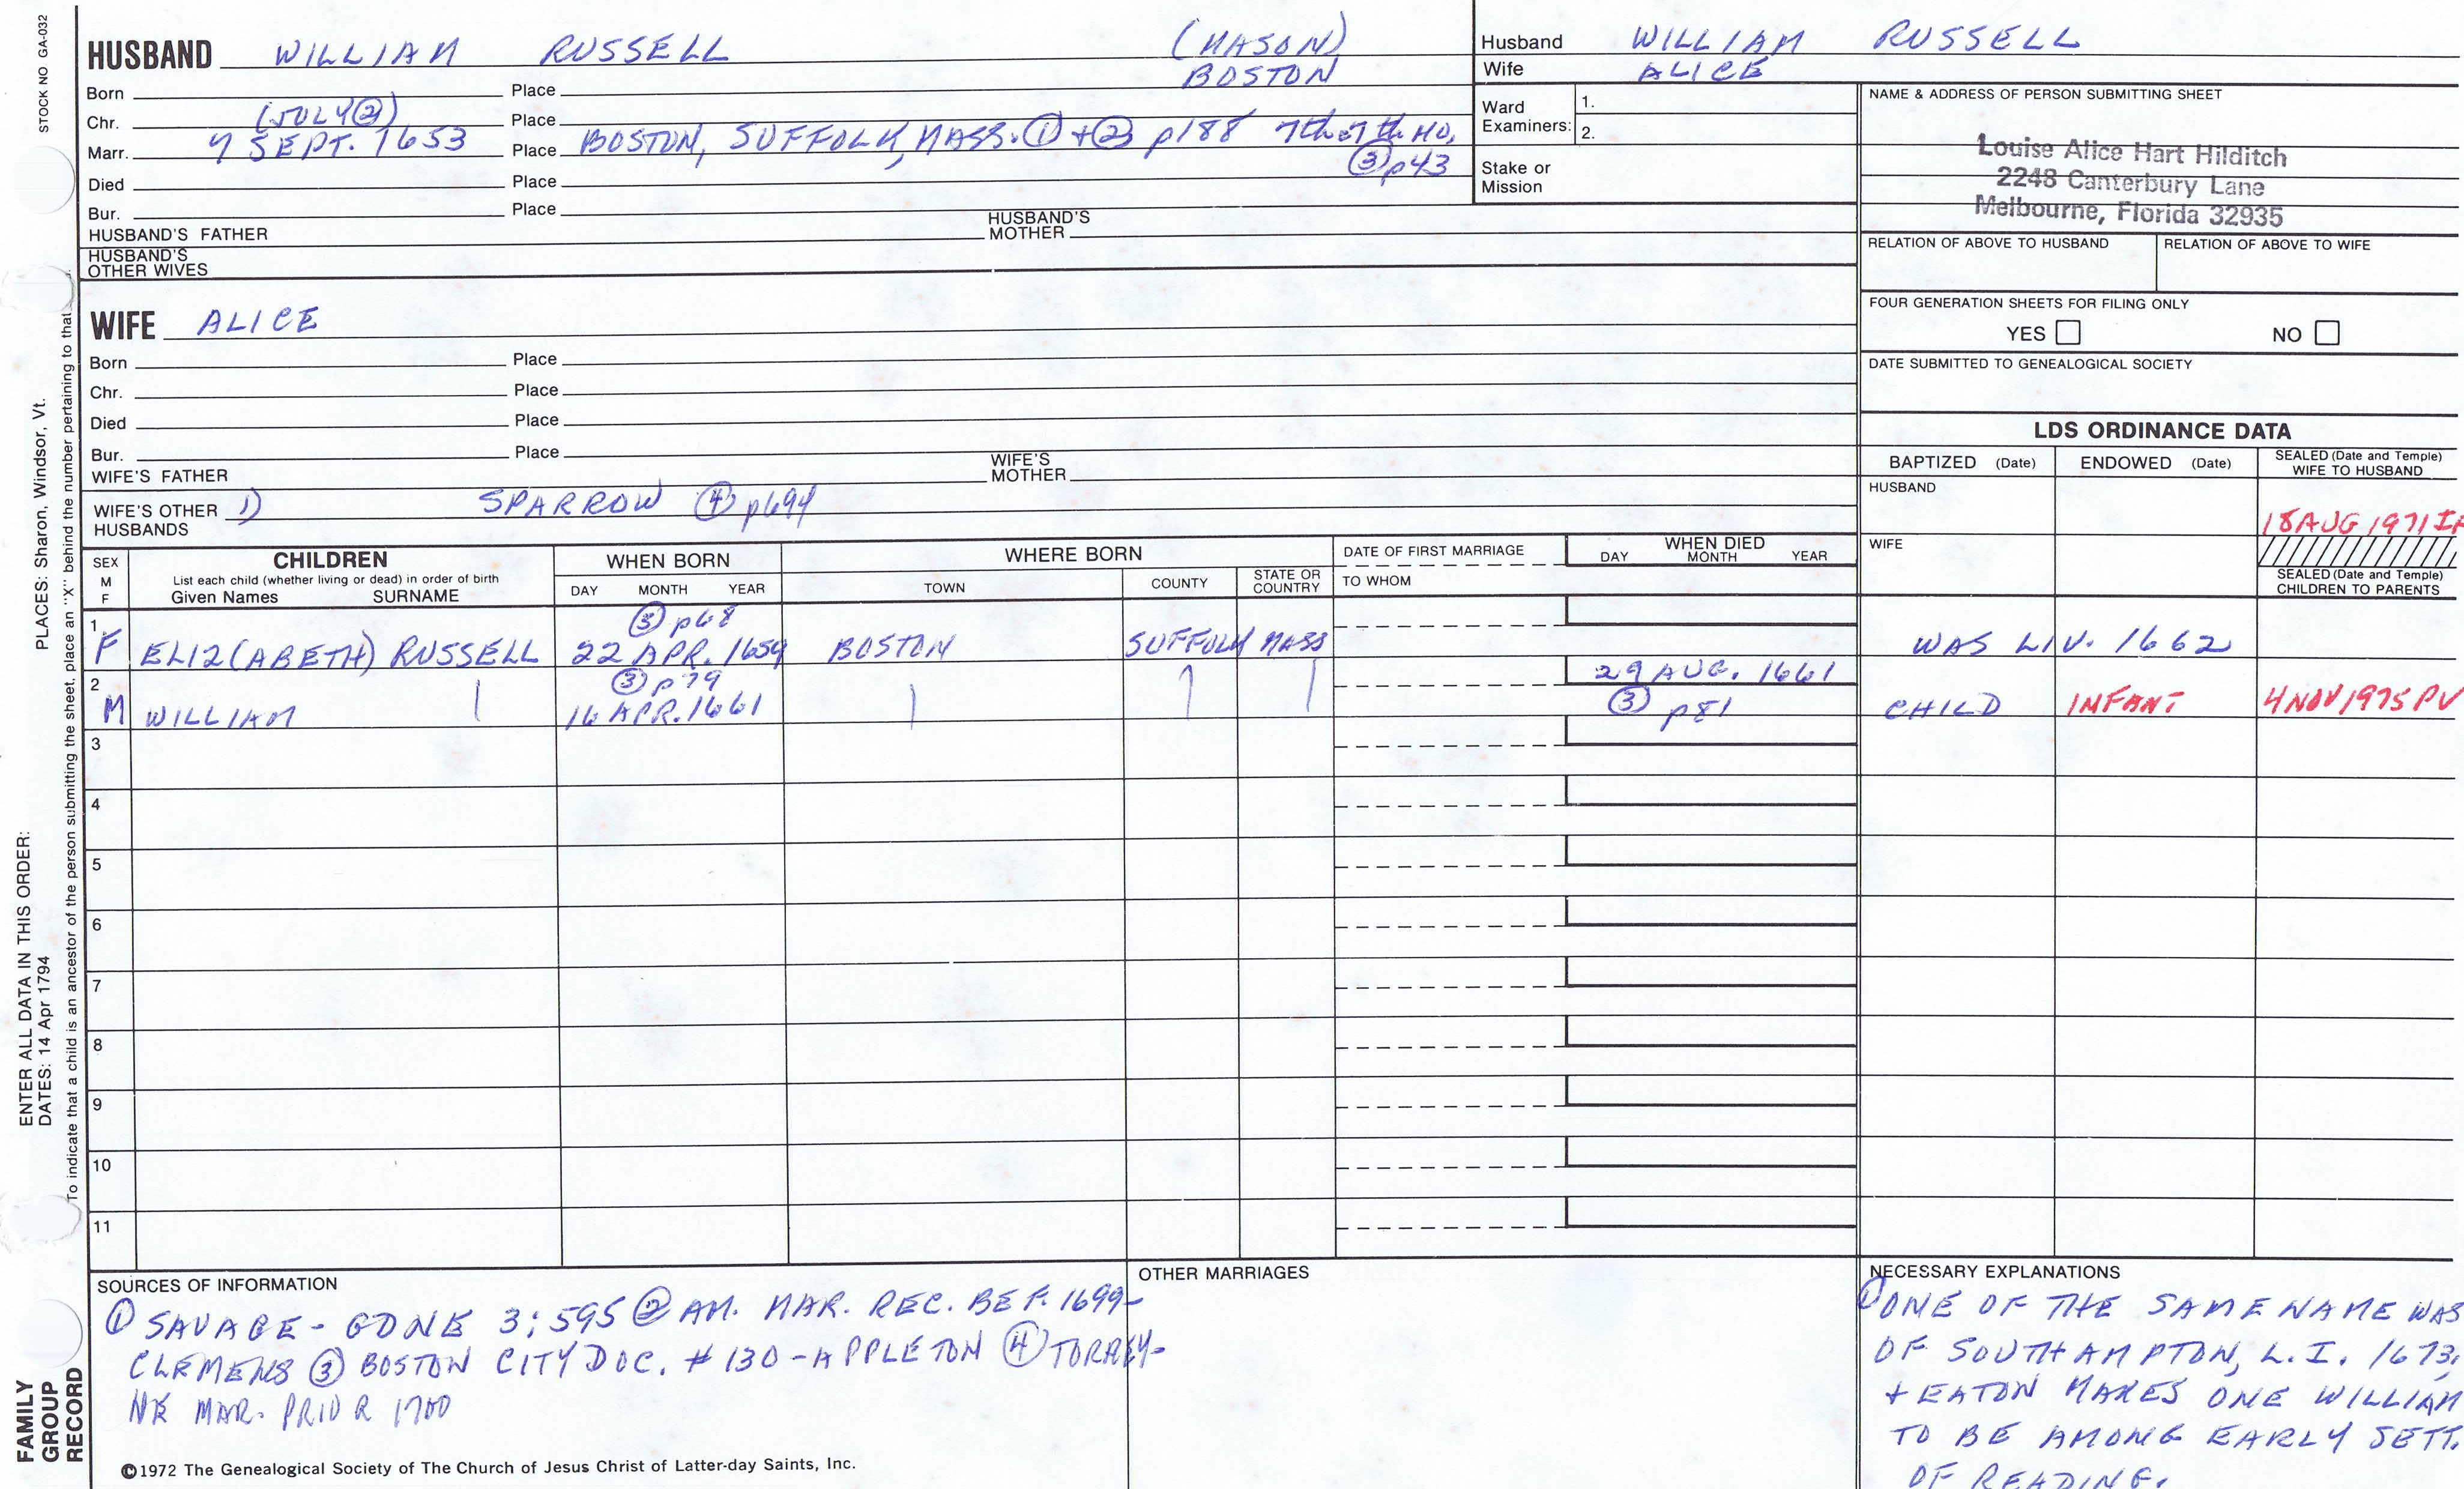 STOCK NO GA-032
HUSBAND WILLIAM RUSSELL (MASON)
BOSTON
Born Place
Chr. (JULY ②) Place
Marr. 7 SEPT. 1653 Place BOSTON, SUFFOLK, MASS. ① + ② p188 7th of 7th MO,
③ p43
Died Place
Bur. Place
HUSBAND'S FATHER HUSBAND'S MOTHER
HUSBAND'S OTHER WIVES
Husband WILLIAM RUSSELL
Wife ALICE
Ward Examiners: 1.
2.
Stake or Mission
NAME & ADDRESS OF PERSON SUBMITTING SHEET
Louise Alice Hart Hilditch
2248 Canterbury Lane
Melbourne, Florida 32935
RELATION OF ABOVE TO HUSBAND RELATION OF ABOVE TO WIFE
FOUR GENERATION SHEETS FOR FILING ONLY
YES NO
DATE SUBMITTED TO GENEALOGICAL SOCIETY
WIFE ALICE
Born Place
Chr. Place
Died Place
Bur. Place
WIFE'S FATHER WIFE'S MOTHER
WIFE'S OTHER HUSBANDS 1) SPARROW ④ p694
LDS ORDINANCE DATA
BAPTIZED (Date) ENDOWED (Date) SEALED (Date and Temple) WIFE TO HUSBAND
HUSBAND 18 AUG 1971 IF
WIFE
SEALED (Date and Temple) CHILDREN TO PARENTS
SEX M F
CHILDREN
List each child (whether living or dead) in order of birth
Given Names SURNAME
WHEN BORN
DAY MONTH YEAR
WHERE BORN
TOWN COUNTY STATE OR COUNTRY
DATE OF FIRST MARRIAGE
TO WHOM
WHEN DIED
DAY MONTH YEAR
③ p68
1 F ELIZ(ABETH) RUSSELL 22 APR. 1659 BOSTON SUFFOLK MASS WAS LIV. 1662
③ p79 29 AUG. 1661
2 M WILLIAM 16 APR. 1661 ③ p81 CHILD INFANT 4 NOV 1975 PV
3
4
5
6
7
8
9
10
11
SOURCES OF INFORMATION
① SAVAGE - GDNE 3:595 ② AM. MAR. REC. BEF. 1699-
CLEMENS ③ BOSTON CITY DOC. #130 - APPLETON ④ TORREY-
NE MAR. PRIOR 1700
OTHER MARRIAGES
NECESSARY EXPLANATIONS
① ONE OF THE SAME NAME WAS
OF SOUTHAMPTON, L.I. 1673,
+ EATON MAKES ONE WILLIAM
TO BE AMONG EARLY SETT.
OF READING.
©1972 The Genealogical Society of The Church of Jesus Christ of Latter-day Saints, Inc.
FAMILY
GROUP
RECORD
ENTER ALL DATA IN THIS ORDER:
DATES: 14 Apr 1794
PLACES: Sharon, Windsor, Vt.
To indicate that a child is an ancestor of the person submitting the sheet, place an "X" behind the number pertaining to that